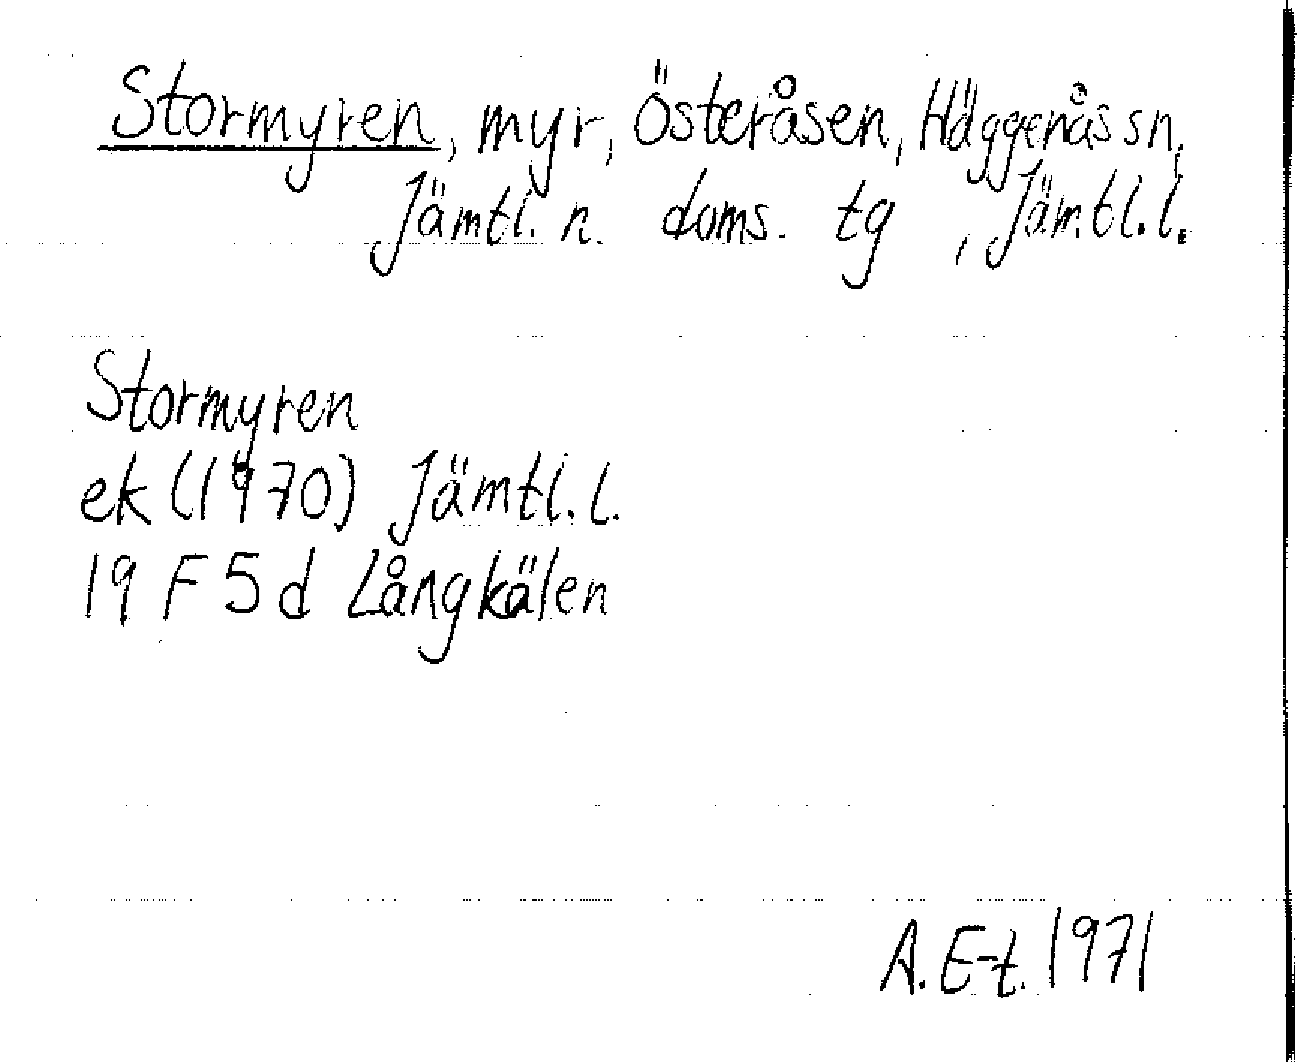 Stormyren, myr, Österåsen, Häggenås sn,
Jämtl. n. doms. tg , Jämtl. l.
Stormyren
ek (1970) Jämtl. l.
19 F 5 d Långkälen
A. E-t. 1971